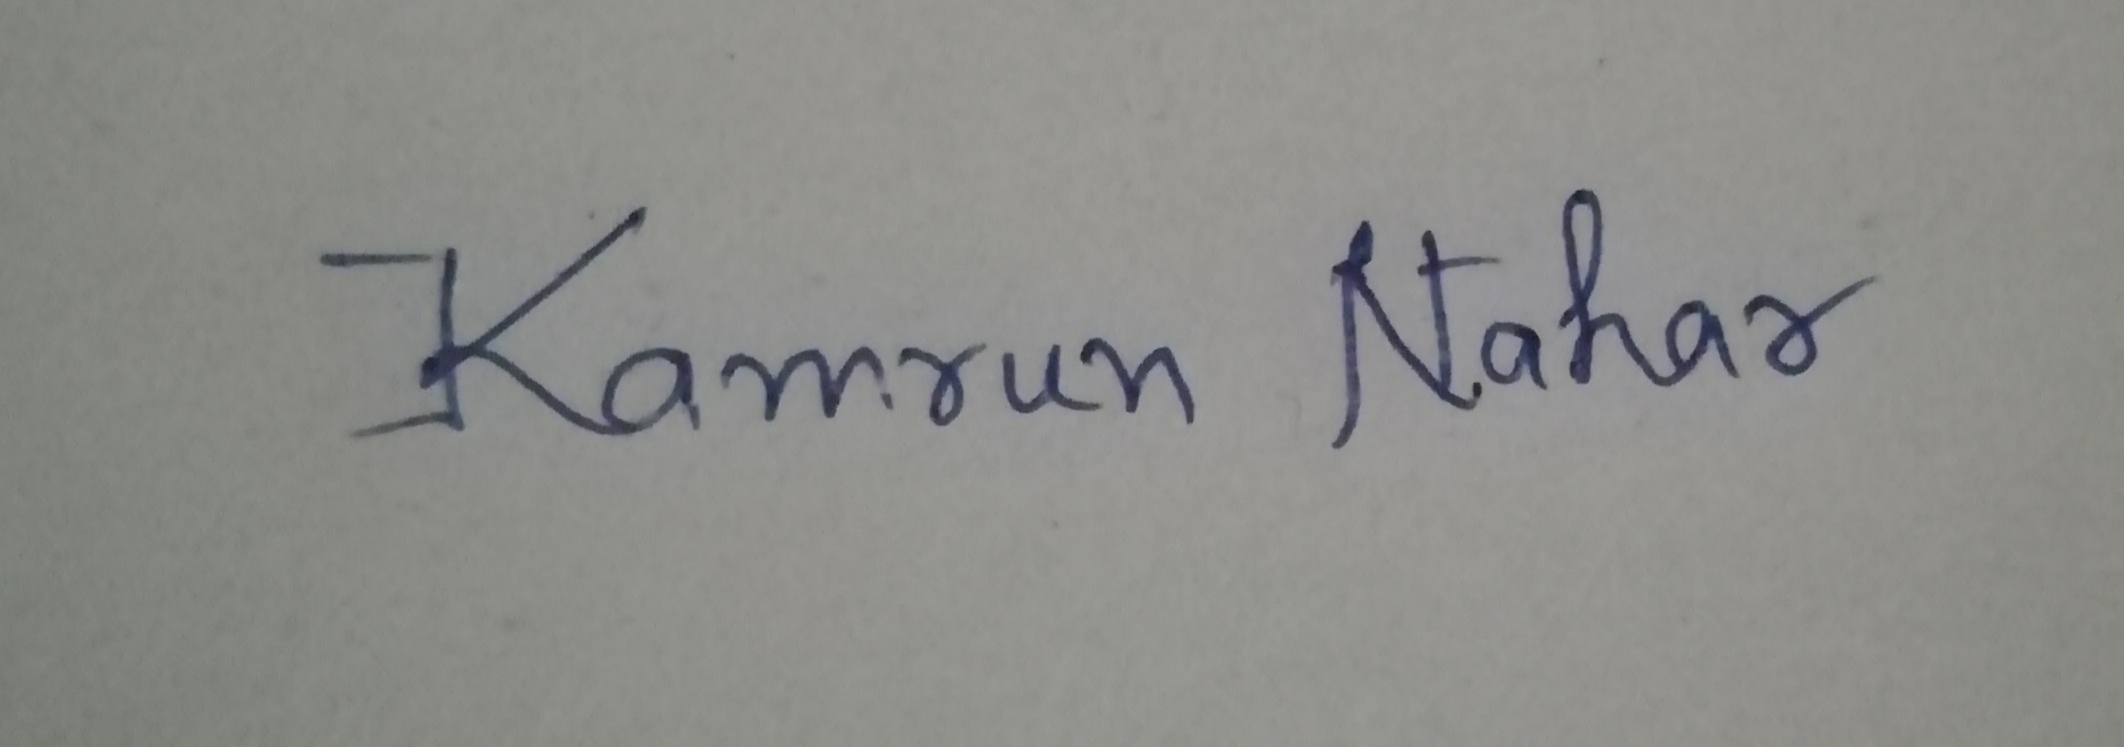 Kamrun Nahar